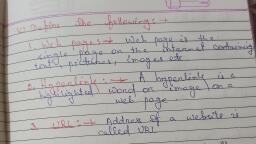 Define the following:→
1. Web page:→ Web page is the
single page on the internet containing
text, pictures, images etc.
2. Hyperlink:→ A hyperlink is a
highlighted word or image on a
web page.
3. URL:→ Address of a website is
called URL.